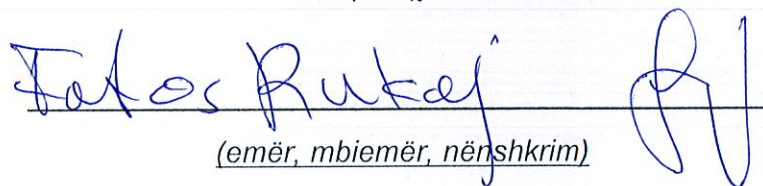 Fatos Rukaj
(emër, mbiemër, nënshkrim)